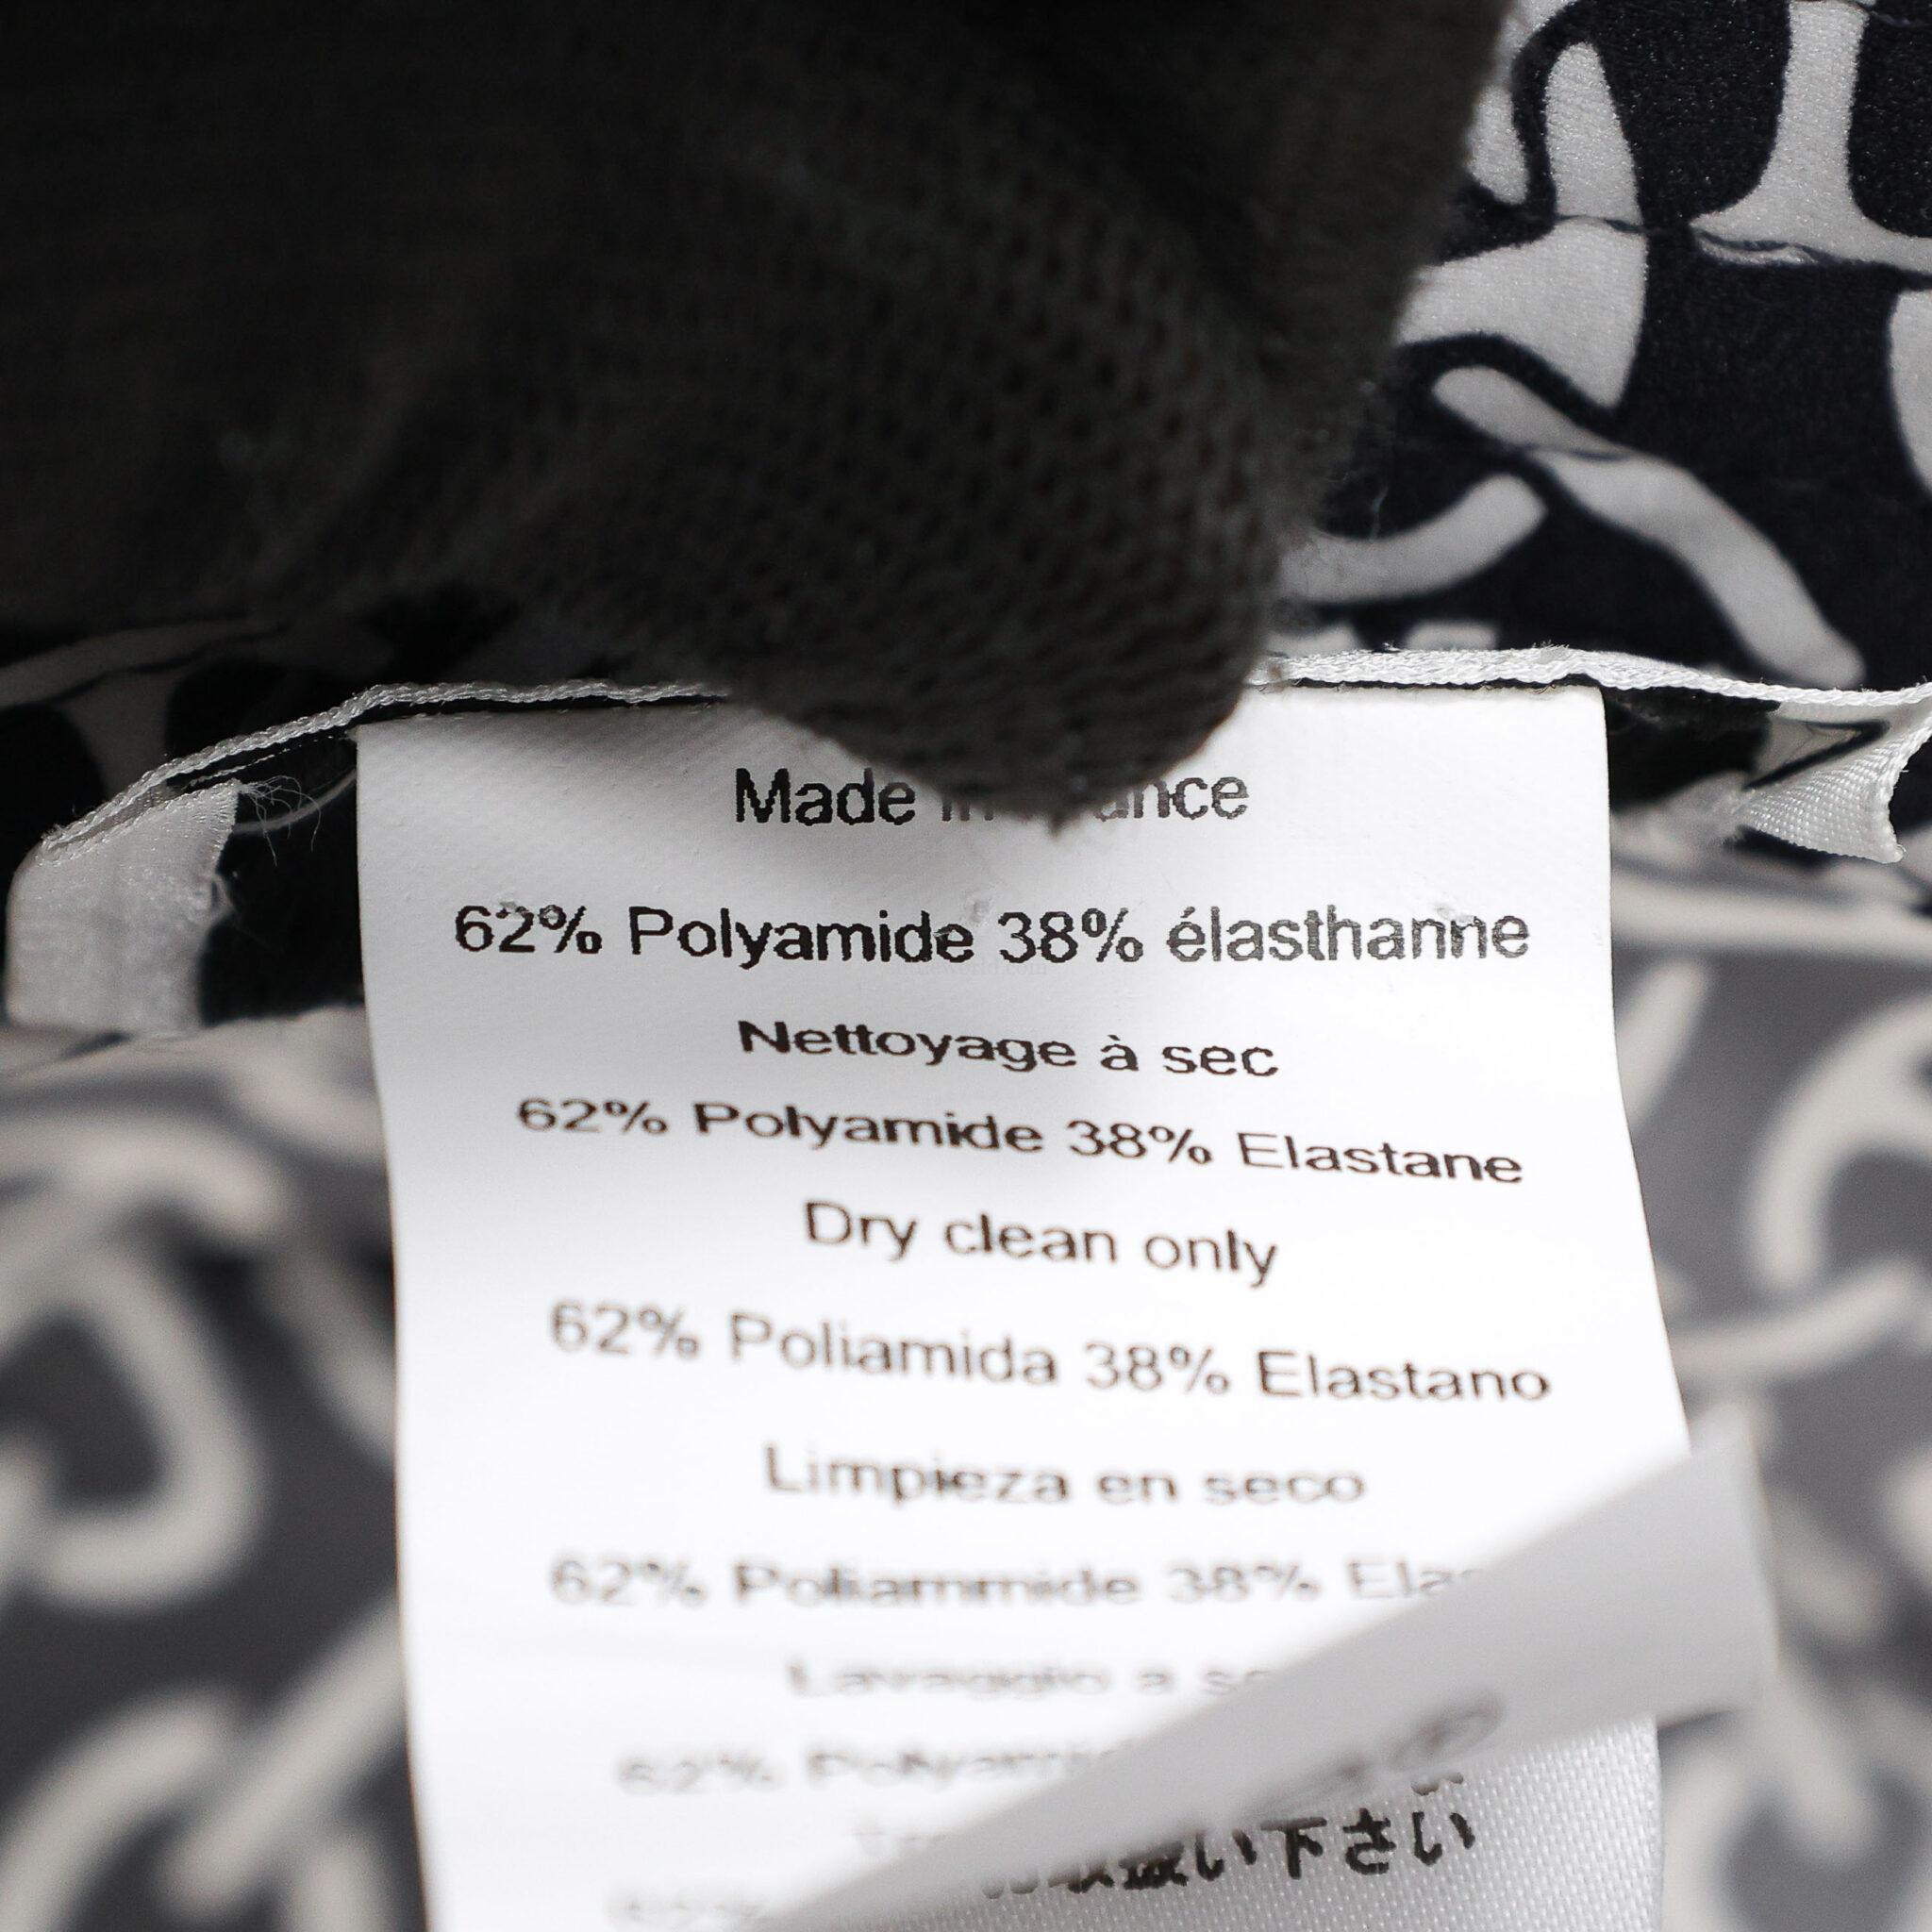 Made
62% Polyamide 38% élasthanne
Nettoyage à sec
62% Polyamide 38% Elastane
Dry clean only
62% Poliamida 38% Elastano
Limpieza en seco
62% Poliammide 38%
Lavaggio a
62%
取扱い下さい